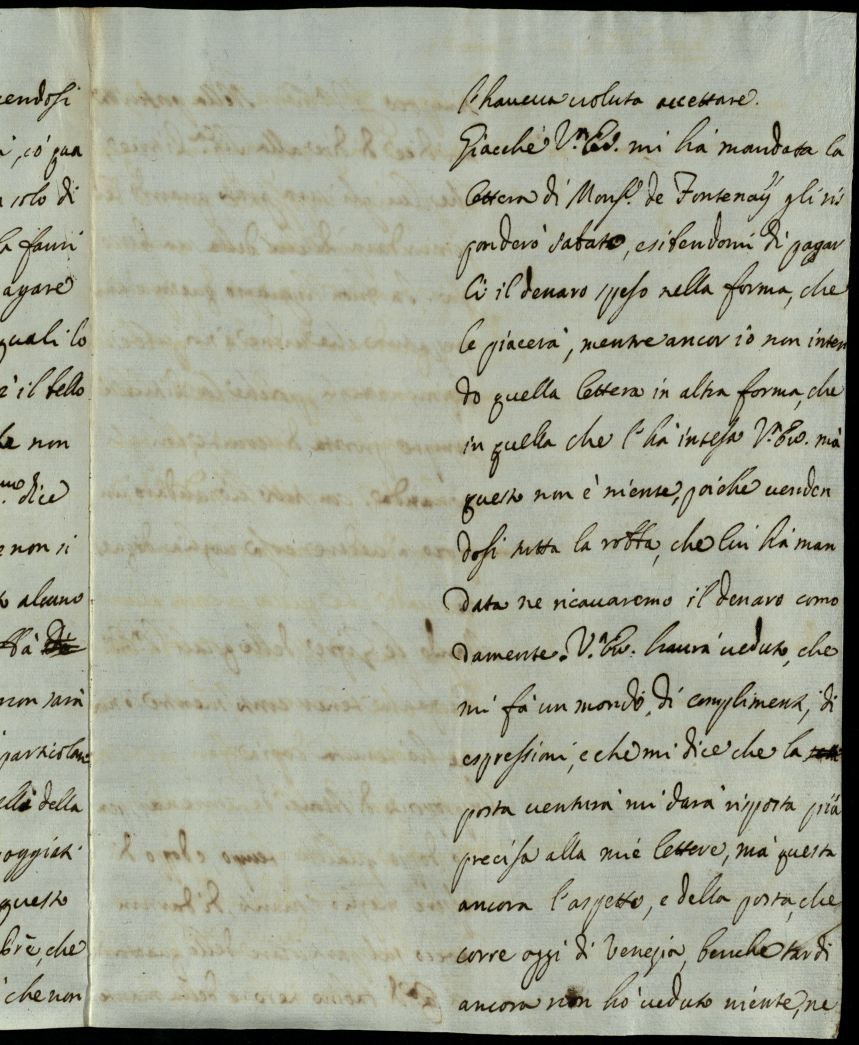 cendosi
, co' qua
solo di
la fauri
agare
quali lo
è il bello
le non
dice
e non si
alcuno
non sarà
particolar
della
poggiati
questo
bre, che
che non
l'haueua uoluta accettare.
Giacche V.ra Ecc. mi ha mandata la
lettera di Mons.r de Fontenay gli ris
ponderò sabato, esibendomi di pagar
li il denaro speso nella forma, che
le piacerà, mentre ancor io non inten
do quella lettera in altra forma, che
in quella che l'ha intesa V.ra Ecc. mà
questo non è niente, poiche uenden
dosi tutta la robba, che lui hà man
data ne ricauaremo il denaro como
damente. V.ra Ecc. haurà ueduto, che
mi fà un mondo di complimenti, di
espressioni, e che mi dice che la
posta uentura mi darà risposta più
precisa alla mie lettere, mà questa
ancora l'aspetto, e della posta, che
corre oggi di Venezia, benche tardi
ancora non hò ueduto niente, ne